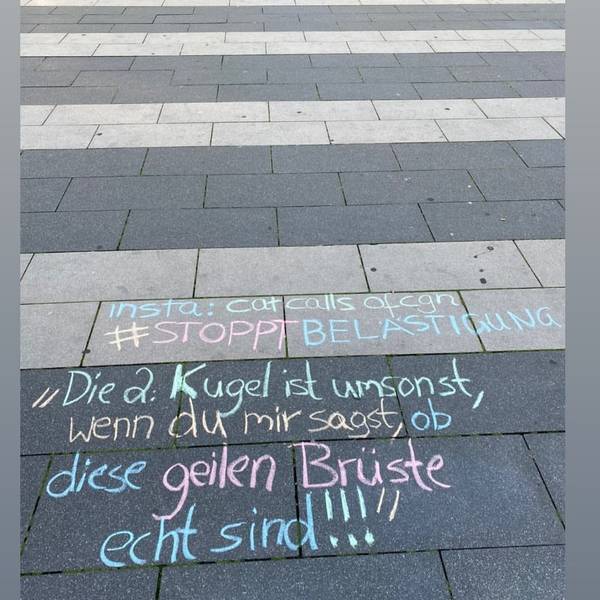 insta: catcallsofcgn
#STOPPT BELÄSTIGUNG
„Die 2. Kugel ist umsonst,
wenn du mir sagst, ob
diese geilen Brüste
echt sind!!!"